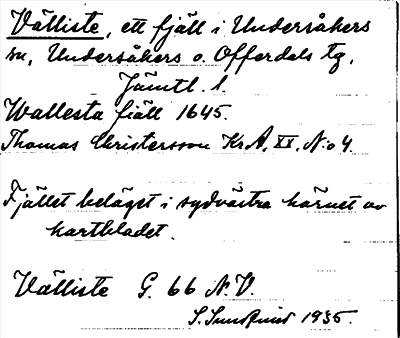 Välliste, ett fjäll i Undersåkers
sn, Undersåkers o. Offerdals tg,
Jämtl. l.
Wallesta fiäll 1645.
Thomas Christersson KrA, XX, No 4.
Fjället beläget i sydvästra hörnet av
kartbladet.
Välliste G. 66 N.V.
1935.